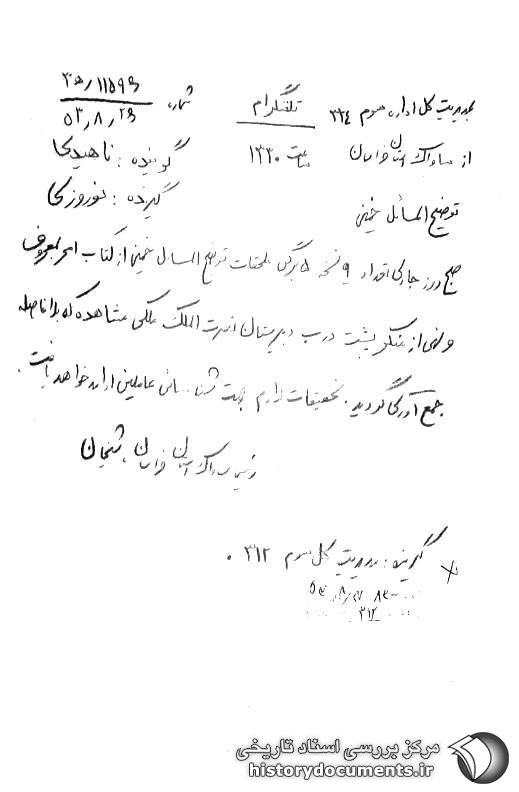 بمدیریت کل اداره سوم ۳۳۴ تلفنگرام شماره ۳۵/۱۱۵۹۶
۵۳/۸/۲۶
از ساواک استان خراسان ساعت ۱۳۳۰ گوینده: ناهیدی
گیرنده: نوروزی
توضیح المسائل خمینی
صبح روز جاری تعداد ۹ نسخه ۵ برگی ملحقات توضیح المسائل خمینی از کتاب امر بمعروف
و نهی از منکر پشت درب دبیرستان نصرت الملک ملکی مشاهده که بلافاصله
جمع آوری گردید. تحقیقات لازم جهت شناسائی عاملین ادامه خواهد یافت.
رئیس ساواک استان خراسان. شیخان
گیرنده: مدیریت کل سوم ۳۱۲.
۳۱۲
مرکز بررسی اسناد تاریخی
historydocuments.ir